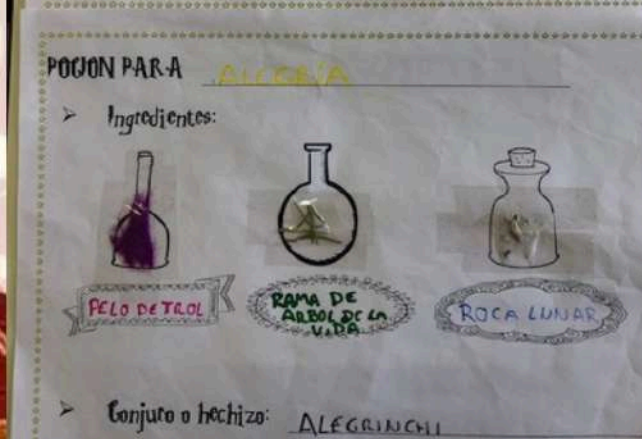 POCION PARA ALEGRÍA
Ingredientes:
PELO DE TROL
RAMA DE
ARBOL DE LA
VIDA
ROCA LUNAR
Conjuro o hechizo: ALEGRINCHI